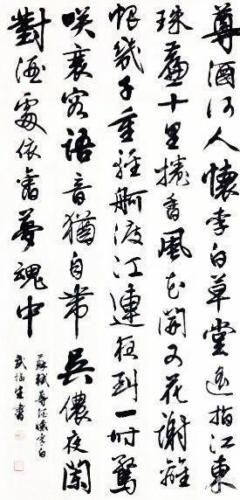 尊酒何人懷李白草堂遥指江東
珠簾十里捲香風花開又花謝離
恨幾千重輕舸渡江連夜到一時驚
咲衰容語音猶自帶吳儂夜闌
對酒處依舊夢魂中
蘇軾尊酒懷李白